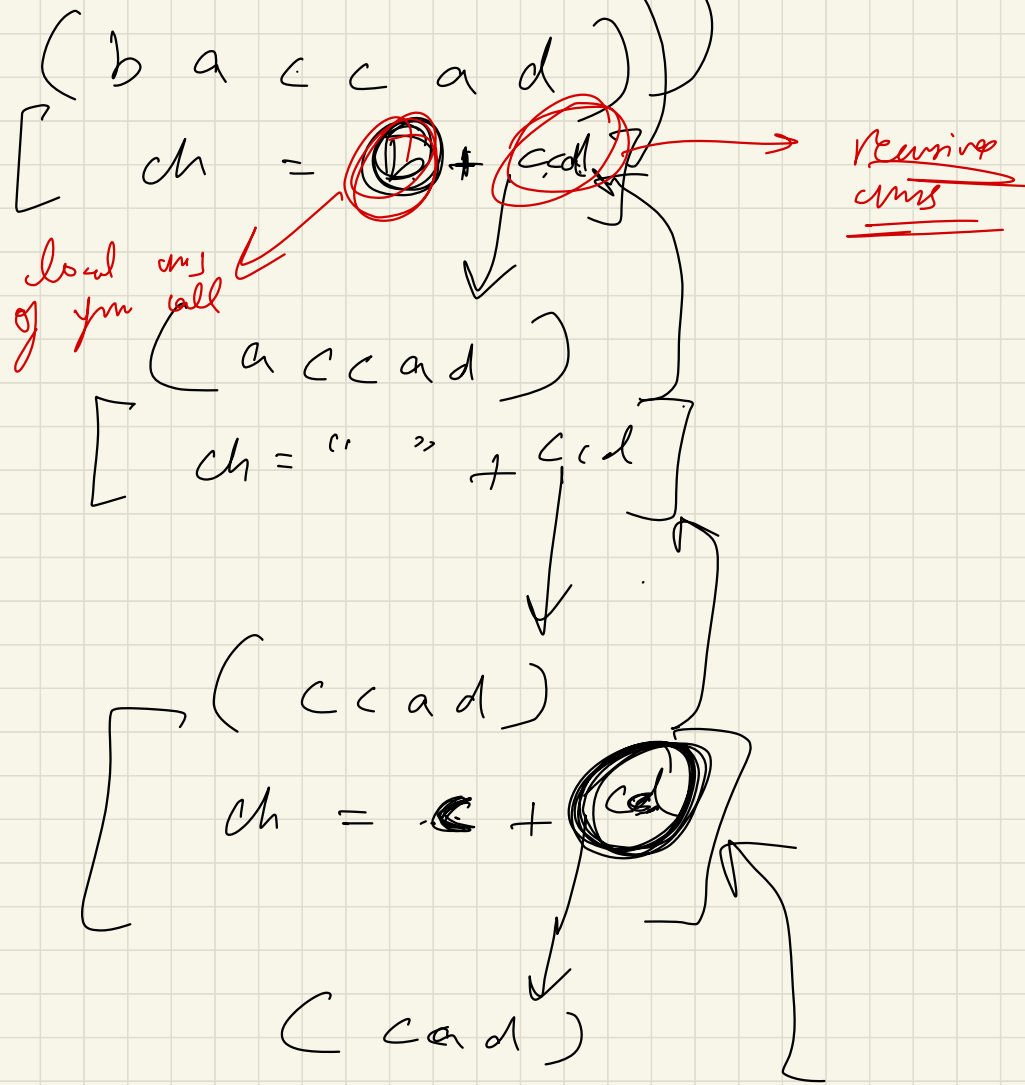 ( b a c c a d ) ) )
[ ch = b + ccd ]
recursive
ans
local ans
of your call
( a c c a d )
[ ch = “ ” + ccd ]
( c c a d )
[ ch = c + cd ]
( c a d )